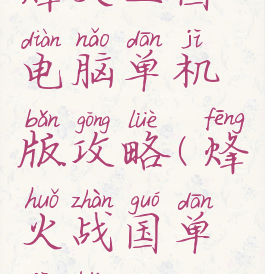 diàn nǎo dān jī
电脑单机
bǎn gōng lüè fēng
版攻略(烽
huǒ zhàn guó dān
火战国单